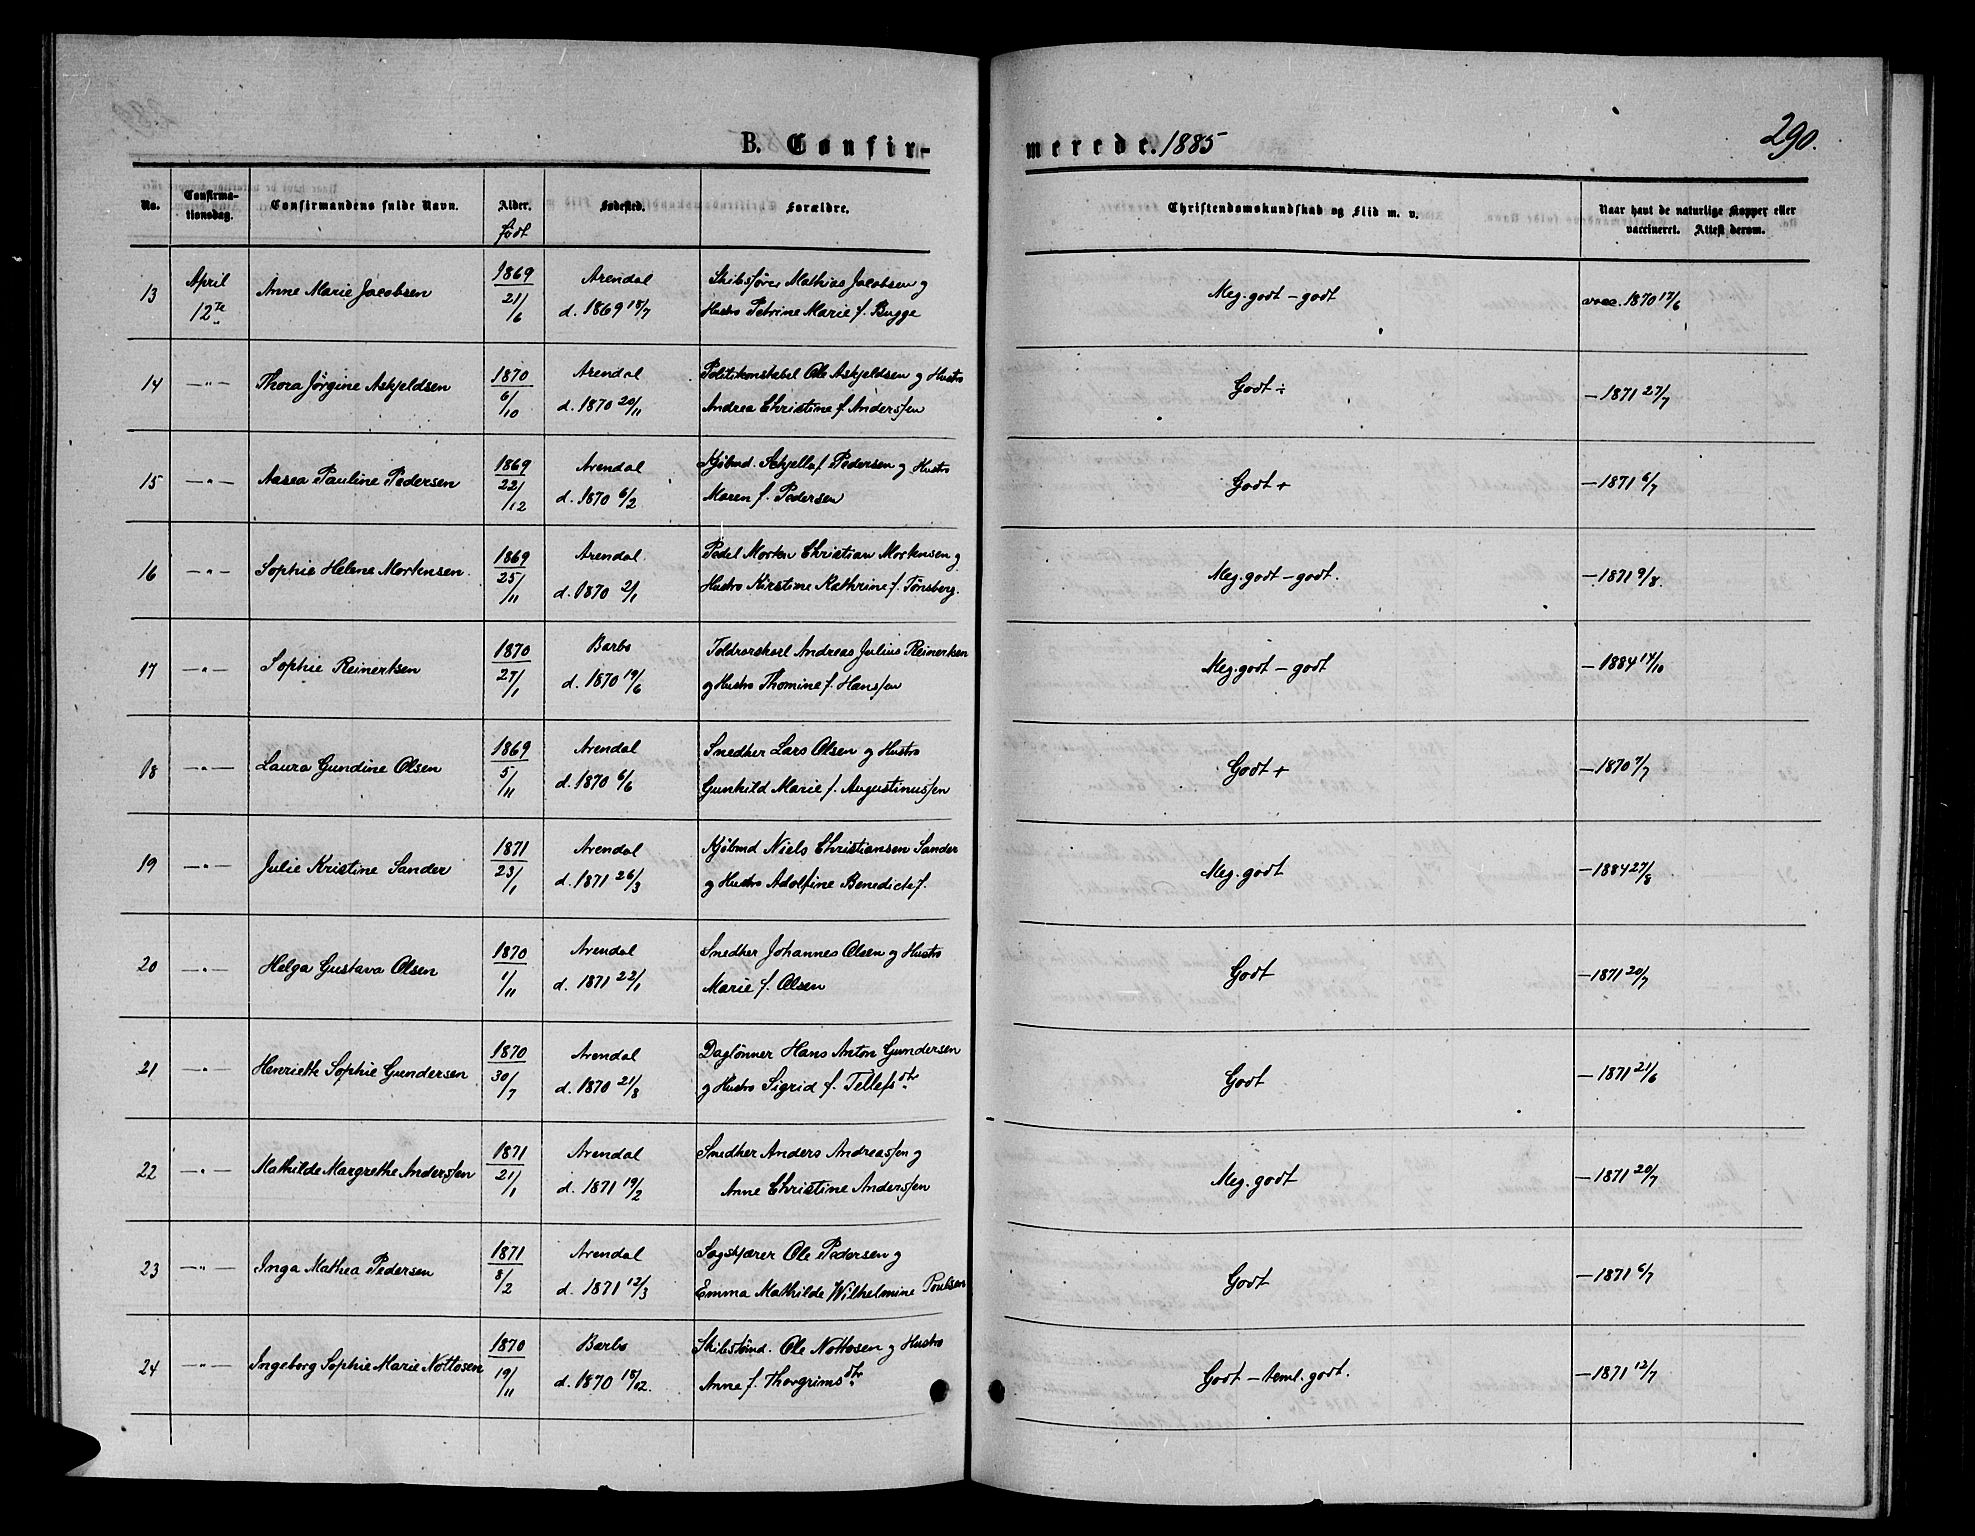 B. Confirmerede. 1885
290.
No. | Confirmationsdag. | Confirmandens fulde Navn. | Alder. født | Fødested. | Forældre. | Christendomskundskab og Flid m. v. | Naar havt de naturlige Kopper eller vaccineret. Attest derom.
13 | April 12te | Anne Marie Jacobsen | 1869 21/6 | Arendal d. 1869 18/7 | Skibsfører Mathias Jacobsen og Hustro Petrine Marie f. Bugge | Meg. godt – godt | vacc. 1870 17/6
14 | —"— | Thora Jørgine Askjeldsen | 1870 6/10 | Arendal d. 1870 20/11 | Politikonstabel Ole Askjeldsen og Hustro Andrea Christine f. Anderssen | Godt ÷ | — 1871 27/7
15 | —"— | Aasea Pauline Pedersen | 1869 22/12 | Arendal d. 1870 6/2 | Kjøbmd. Pedersen og Hustro Maren f. Pedersen | Godt + | — 1871 6/7
16 | —"— | Sophie Helene Mortensen. | 1869 25/11 | Arendal. d. 1870 2/1 | Pedel Morten Christian Mortensen og Hustro Kirstine Kathrine f. Tønsberg. | Meg. godt – godt. | — 1871 9/8.
17 | —"— | Sophie Reinertsen | 1870 27/1 | Barbo d. 1870 19/6 | Toldrorskarl Andreas Julius Reinertsen og Hustro Thomine f. Hanssen | Meg. godt – godt | — 1884 14/10
18 | —"— | Laura Gundine Olsen | 1869 5/11 | Arendal d. 1870 6/6 | Snedker Lars Olsen og Hustro Gunhild Marie f. Augustinussen | Godt + | — 1870 7/7
19 | —"— | Julie Kristine Sander | 1871 23/1 | Arendal d. 1871 26/3 | Kjøbmd Niels Christiansen Sander og Hustro Adolfine Benedicte f. | Meg. godt | — 1884 27/8
20 | —"— | Helga Gustava Olsen | 1870 1/11 | Arendal d. 1871 22/1 | Snedker Johannes Olsen og Hustro Marie f. Olsen | Godt | — 1871 20/7
21 | —"— | Henriette Sophie Gundersen | 1870 30/7 | Arendal d. 1870 21/8 | Daglønner Hans Anton Gundersen og Hustro Sigrid f. Tellefsdtr | Godt | — 1871 21/6
22 | —"— | Mathilde Margrethe Anderssen | 1871 21/1 | Arendal d. 1871 19/2 | Snedker Anders Andreassen og Anne Christine Anderssen | Meg. godt | — 1871 20/7
23 | —"— | Inga Mathea Pedersen | 1871 8/2 | Arendal d. 1871 12/3 | Sagskjærer Ole Pedersen og Emma Mathilde Wilhelmine Poulsen | Godt | — 1871 6/7
24 | —"— | Ingeborg Sophie Marie Nottosen | 1870 19/11 | Barbo d. 1870 18/12. | Skibstømd. Ole Nottosen og Hustro Anne f. Thorgrimsdtr | Godt – teml. godt. | — 1871 12/7